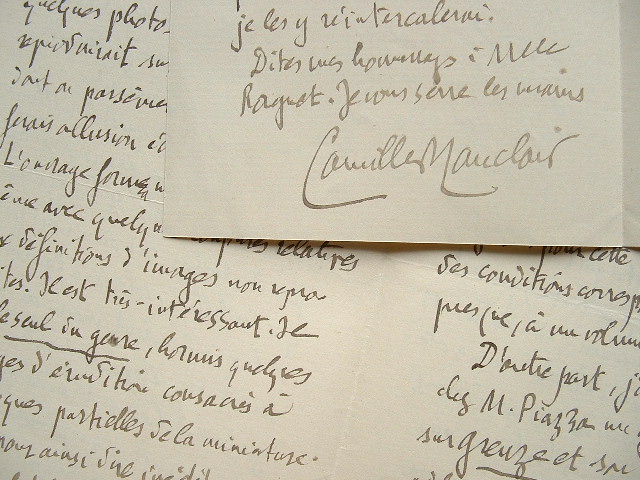 je les y réintercalerai.
Dites mes hommages à Mlle
Je vous serre les mains
Camille Mauclair
quelques photo
reproduirait su
dont on parsème
ferais allusion
L'ouvrage forme
ême avec quelqu
relatives
définitions d'images non repro-
ites. Il est très-intéressant. Je
le seul du genre, hormis quelques
ges d'érudition consacrés à
ques partielles de la miniature.
nous ainsi dire inédit
pour cette
des conditions corresp
presque, à un volum
D'autre part, j'
chez M. Piazza un
sur Greuze et son